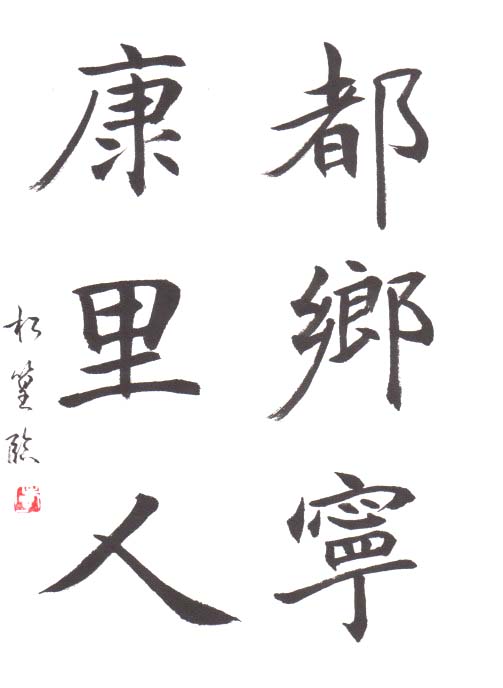 都鄉寧
康里人
松篁臨